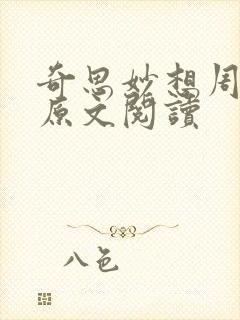 奇思妙想周
原文閱讀
八色